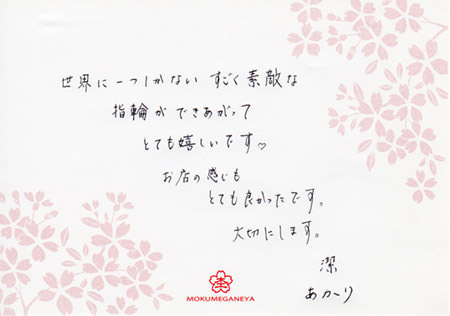 世界に一つしかない すごく素敵な
指輪ができあがって
とても嬉しいです♡
お店の感じも
とても良かったです。
大切にします。
潔
あかり
MOKUMEGANEYA